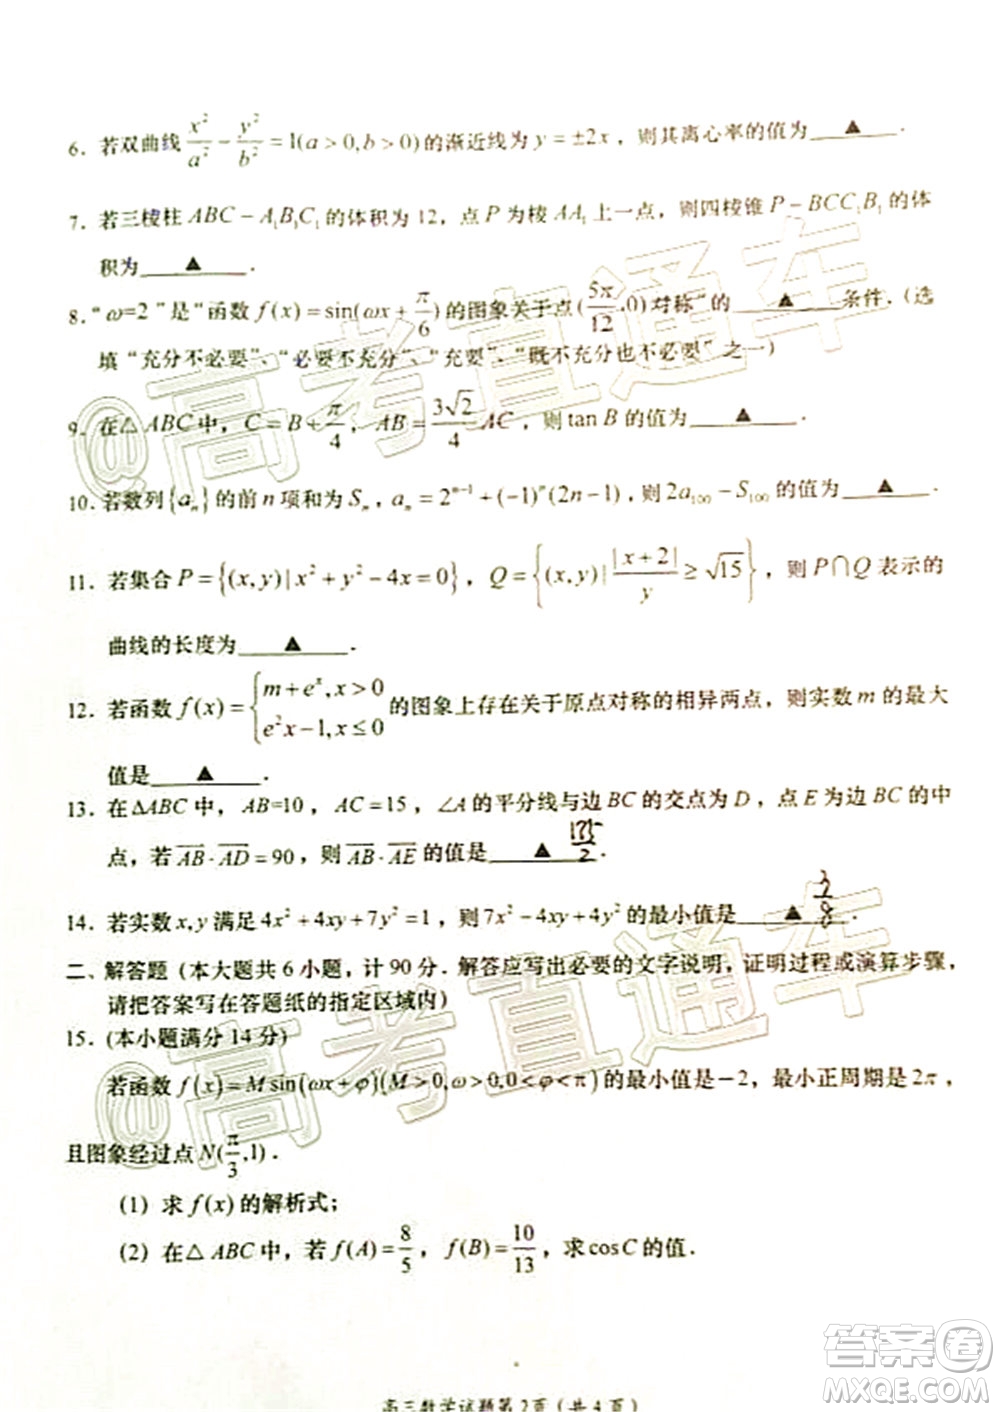 6．若双曲线 x²/a² − y²/b² = 1(a＞0,b＞0)的渐近线为 y = ±2x，则其离心率的值为 ▲ ．
7．若三棱柱 ABC − A₁B₁C₁ 的体积为 12，点 P 为棱 AA₁ 上一点，则四棱锥 P − BCC₁B₁ 的体
积为 ▲ ．
8．“ω=2”是“函数 f(x) = sin(ωx + π/6) 的图象关于点(5π/12,0)对称”的 ▲ 条件．(选
填“充分不必要”、“必要不充分”、“充要”、“既不充分也不必要”之一)
9．在△ABC 中，C = B + π/4，AB = 3√2/4 AC，则 tan B 的值为 ▲ ．
10．若数列{aₙ}的前 n 项和为 Sₙ，aₙ = 2ⁿ⁻¹ + (−1)ⁿ(2n−1)，则 2a₁₀₀ − S₁₀₀ 的值为 ▲ ．
11．若集合 P = {(x,y)| x² + y² − 4x = 0}，Q = {(x,y)| |x+2|/y ≥ √15}，则 P∩Q 表示的
曲线的长度为 ▲ ．
12．若函数 f(x) = { m + eˣ, x＞0
e²x − 1, x ≤ 0 的图象上存在关于原点对称的相异两点，则实数 m 的最大
值是 ▲ ．
13．在ΔABC 中，AB=10，AC=15，∠A 的平分线与边 BC 的交点为 D，点 E 为边 BC 的中
点，若 AB·AD = 90，则 AB·AE 的值是 ▲ ．
14．若实数 x,y 满足 4x² + 4xy + 7y² = 1，则 7x² − 4xy + 4y² 的最小值是 ▲ ．
二、解答题（本大题共 6 小题，计 90 分．解答应写出必要的文字说明，证明过程或演算步骤，
请把答案写在答题纸的指定区域内）
15．(本小题满分 14 分)
若函数 f(x) = M sin(ωx + φ)(M＞0,ω＞0,0＜φ＜π)的最小值是－2，最小正周期是 2π，
且图象经过点 N(π/3,1)．
(1) 求 f(x) 的解析式；
(2) 在△ABC 中，若 f(A) = 8/5，f(B) = 10/13，求 cos C 的值．
高三数学试题第 2 页（共 4 页）
@高考直通车
@高考直通车
答案卷
MXQE.COM